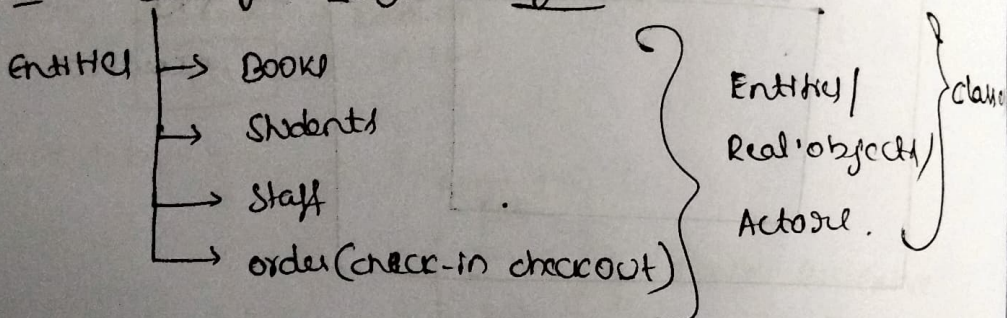 Entities
Books
Students
Staff
order (check-in checkout)
Entities/
Real objects/
Actors.